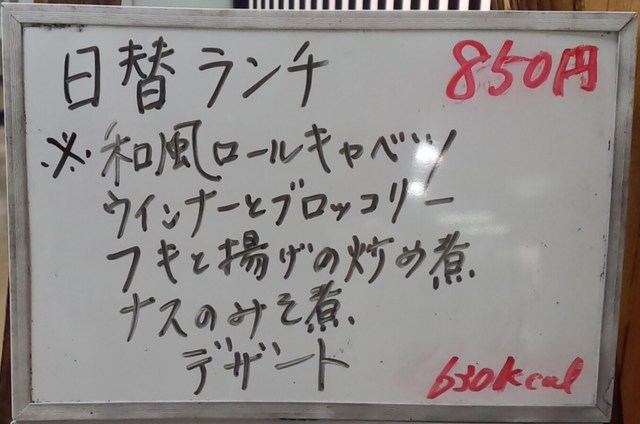 日替ランチ 850円
※和風ロールキャベツ
ウインナーとブロッコリー
フキと揚げの炒め煮
ナスのみそ煮
デザート
630kcal